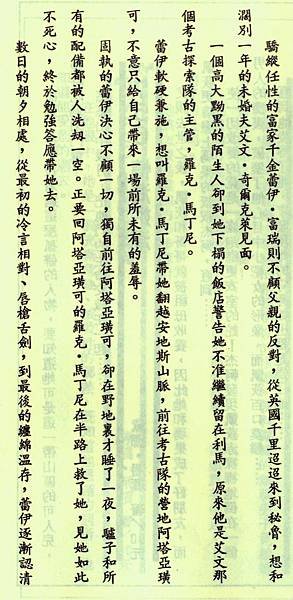 驕縱任性的富家千金蕾伊‧富瑞則不顧父親的反對，從英國千里迢迢來到秘魯，想和
濶別一年的未婚夫艾文‧奇爾克萊見面。
一個高大黝黑的陌生人卻到她下榻的飯店警告她不准繼續留在利馬，原來他是艾文那
個考古探索隊的主管，羅克‧馬丁尼。
蕾伊軟硬兼施，想叫羅克‧馬丁尼帶她翻越安地斯山脈，前往考古隊的營地阿塔亞璜
可，不意只給自己帶來一場前所未有的羞辱。
固執的蕾伊決心不顧一切，獨自前往阿塔亞璜可，卻在野地裏才睡了一夜，驢子和所
有的配備都被人洗刼一空。正要回阿塔亞璜可的羅克‧馬丁尼在半路上救了她，見她如此
不死心，終於勉強答應帶她去。
數日的朝夕相處，從最初的冷言相對、唇槍舌劍，到最後的纏綿溫存，蕾伊逐漸認清